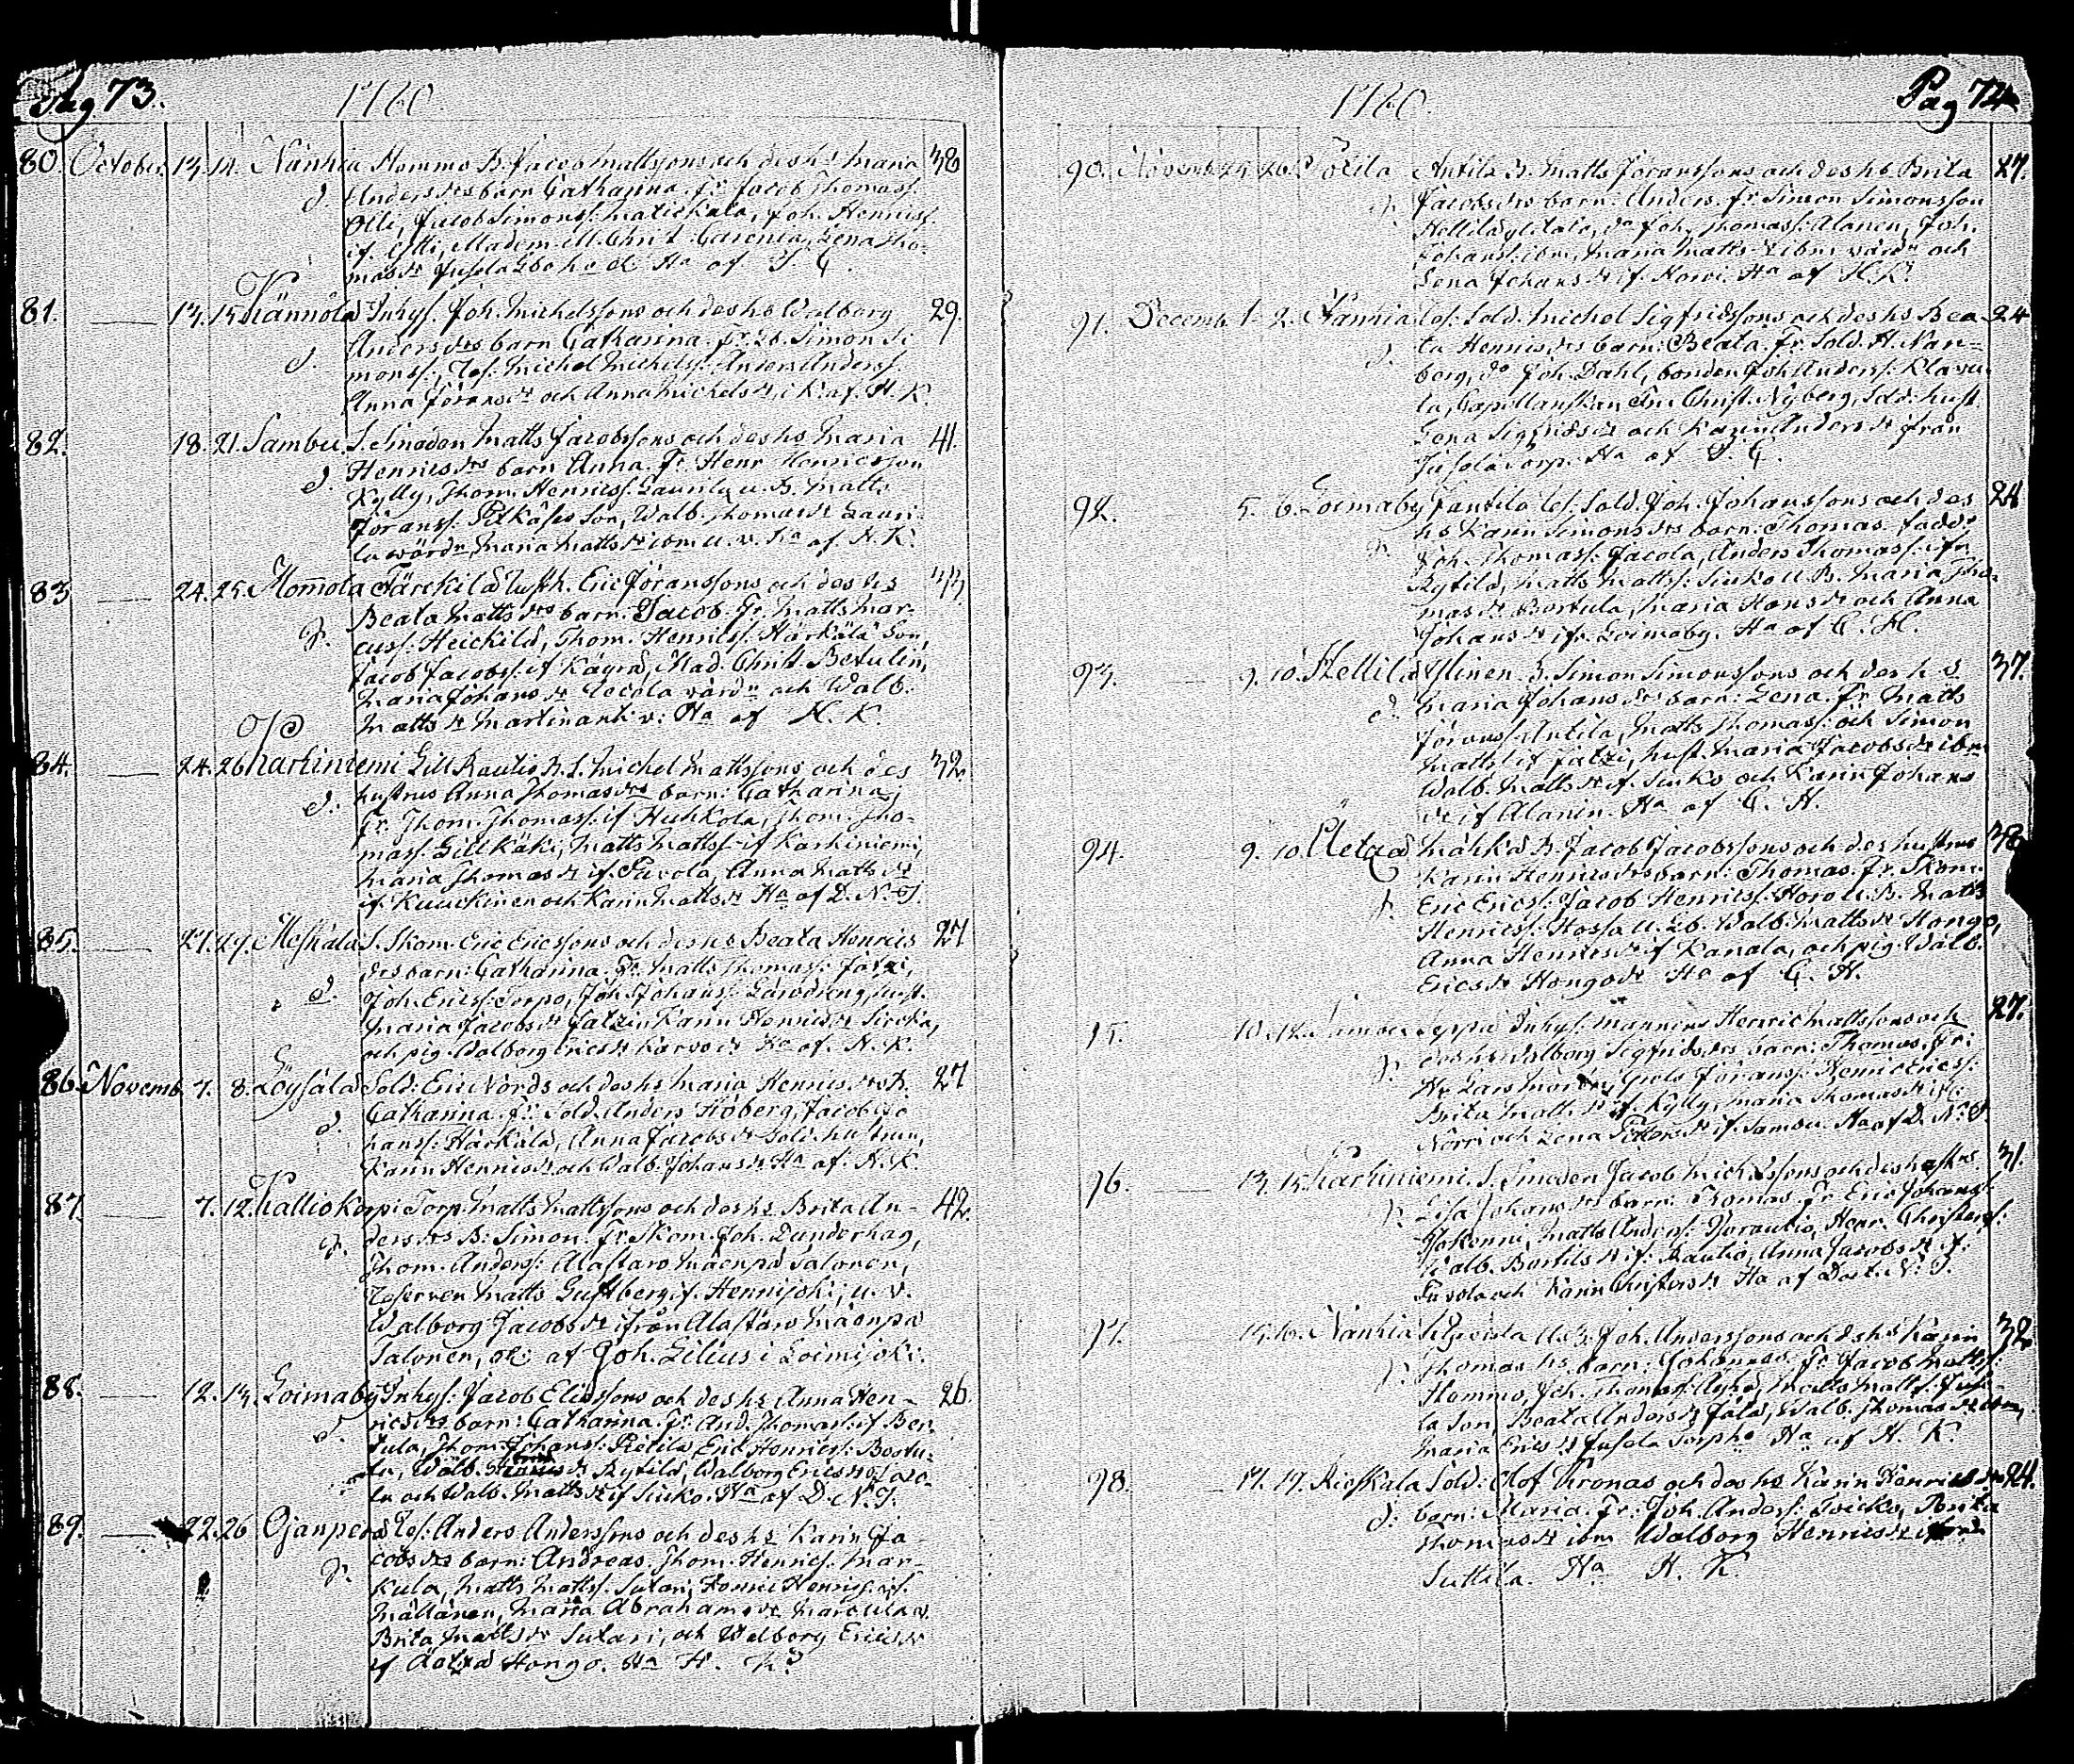 Pag 73.
1760.
80. October. 13. 14. Nanhia Hommo B. Jacob Mattssons och des hs Maria 38
d. Anders drs barn Catharina. Fr. Jacob Thomass.
Olli, Jacob Simonss: Matickala, Joh. Henricss:
if. Olli, Madem. M. Christ. Carenia, Lena Tho-
mas dr Jusela af
81. 13. 15. Kännölä Inhys. Joh. Michelssons och des hs Walborg 29.
d. Anders drs barn Catharina. Fr. Lb. Simon Si
monss:, Res. Michel Michelss:, Anders Anderss:
Anna Jörans dr och Anna Michels dr i K. af. H. K.
82. 18. 21. Sambu. S. Smeden Matts Jacobssons och des hs Maria 41.
d. Henrics drs barn Anna. Fr. Henr Henricsson
Kylly, Thom. Henricss: Laurila u. B. Matts
Jöranss: Pitkäsis Son, Walb. Thomas dr Lauri-
la wärd:n, Maria Matts dr ibm u. v. Ha af. H. K.
83 24. 25. Mommola Järckilä Eric Jöranssons och des hs 33
g. Beata Matts drs barn. Jacob. Fr. Matts Mar-
cuss: Heickilä, Thom. Henricss: Härkälä Son,
Jacob Jacobss: if Kägrä, Mad. Christ. Betulin,
Maria Johans dr Uecola värd:n och Walb.
Matts dr Martin ant. v: Ha af H. K.
84. 24. 26 Karhiniemi Gill Rautio B. S. Michel Mattssons och des 32.
d. hustrus Anna Thomas drs barn: Catharina;
Fr. Thom. Thomass: if Huhkola, Thom. Tho-
mass. Gill Käki, Matts Mattss: if Karhiniemi,
Maria Thomas dr if. Pavola, Anna Matts dr
if. Kuuckinen och Karin Matts dr Ha af D. N. T.
85. 27. 29. Meskala S. Skom. Eric Ericssons och des hs Beata Henrics 27
d. drs barn: Catharina. Fr. Matts Thomass: Jatzi,
Joh. Ericss: Torpo, Joh. Johanss: hust.
Maria Jacobs dr Jatzi, Karin Henrics dr Sircka,
och pig. Walborg Erics dr Ha af. H. K.
86. Novemb. 7. 8. Löysälä Sold: Eric Nords och des hs Maria Henrics drs B. 27
d. Catharina. Fr. Sold. Anders Höberg, Jacob Jo
hanss: Härkälä, Anna Jacobs dr Sold. hustrun,
Karin Henrics dr och Walb. Johans dr Ha af. H. K.
87. 7. 12. Kalliokorpi Torp. Matts Mattssons och des hs Brita An- 42.
g. ders drs B: Simon. Fr. Skom. Joh. Dunderhag,
Thom. Anderss: Alastaro Mäenpä Salonen,
Reserven Matts Gustberg if. Hennijoki, u. v.
Walborg Jacobs dr ifrån Alastaro Mäenpä
Salonen, af Joh. Gilius i Loimijoki.
88. 12. 13. Loimaby Inhys: Jacob Eliassons och des hs Anna Hen- 26.
d. rics drs barn: Catharina. Fr. And. Thomass: if Ber
tula, Thom. Johanss: Rietila, Eric Henricss: Bertu-
la, Walb. dr Rytilä, Walborg Erics dr Jaco-
la och Walb. Matts dr if Siuko. Ha af D. N. T.
89. 22. 26 Ojanperä Res: Anders Anderssons och des hs Karin Ja-
g. cobs drs barn: Andreas. Thom. Henricss. Mar-
kula, Matts Mattss. Sutari, Henric Henricss. if.
Mällänen, Maria Abrahams dr Marckula v.
Brita Matts dr Sutari, och Walborg Erics dr
if Hongo. Ha H. K.
1760.
Pag 74
90. Novemb. 25. 26. Antila B. Matts Jöranssons och des hs. Brita 27.
g. Jacobs drs barn: Anders. Fr: Simon Simonsson
Hellilä Ylitalo, do Joh. Thomass: Alanen, Joh.
Johanss: ibm, Maria Matts dr ibm värd:n och
Lena Johans dr if. Horvi. Ha af H. K.
91. Decemb. 1. 2. Hannia Res: Sold. Michel Sigfridssons och des hs Bea- 24
d. ta Henrics drs barn: Beata. Fr. Sold. H. Nar-
berg, do Joh. Dahl, bonden Joh. Anderss: Klavu
la, Capellanskan Fru Christ. Nyberg, Sold: hust.
Lena Sigfrids dr och Karin Anders dr ifrån
Jusela Torp. Ha af
92. 5. 6. Loimaby Res. Sold. Joh. Johanssons och des 24
g. hs Karin Simons drs barn: Thomas. fadd:
Joh. Thomass: Jacola, Anders Thomass: ifr.
Rytilä, Matts Mattss: Siuko u. B. Maria Tho-
mas dr Bertula, Maria Hans dr och Anna
Johans dr ifr. Loimaby. Ha af C. H.
93. 9. 10. Hellilä Ylinen B. Simon Simonssons och des h s 37.
d. Maria Johans drs barn: Lena. Fr. Matts
Jöranss: Antila, Matts Thomass: och Simon
Mattss: if Jatzi, hust. Maria Jacobs dr ibm
Walb. Matts dr if. Siuko och Karin Johans
dr if Alanin. Ha af C. H.
94. 9. 10. Metzä Mähkä B. Jacob Jacobssons och des hustrus 38
g. Karin Henrics drs barn: Thomas. Fr. Skom.
Eric Ericss: Jacob Henricss: Horo u. B. Matts
Henricss: Hossa u. Lb. Walb. Matts dr Hongo,
Anna Henrics dr if Kanala, och pig. Walb.
Erics dr Hongo Ha af C. H.
95. 10. 12. Seppä Inhys: Mannens Henric Mattssons och 27.
g. des hs Walborg Sigfrids drs barn: Thomas. Fr:
Hr Lars Greels Jöranss: Henric Ericss:
Brita Matts dr if. Kylly, Maria Thomas dr if:
Nörri och Lena Petters dr if. Sambu. Ha af D. N. T.
96. 13. 15. Karhiniemi. S. Smeden Jacob Michelssons och des hustrus 31.
g. Lisa Johans drs barn: Thomas. Fr Eric Johanss:
Jokenni, Matts Anderss: Ylirautio, Henr. Christerss:
Walb. Bertils dr if: Rautio, Anna Jacobs dr if:
Pavola och Karin Christers dr Ha af Doct. N: T.
97. 15. 16. Nanhia B. Joh. Anderssons och des hs Karin 32
g. Thomas drs. barn: Johannes. Fr. Jacob Mattss:
Hommo, Joh. Thomass: Matts Mattss: Juse-
la Son, Beata Anders dr Walb. Thomas dr ibm,
Maria Erics dr Jusela Ha af H. K.
98. 17. 19. Riesckala Sold: Olof Kronas och des hs Karin Henrics drs 24.
d: barn: Maria. Fr. Joh. Anderss: Brita
Thomas dr ibm Walborg Henrics dr ifrån
Suttila. Ha H. K.